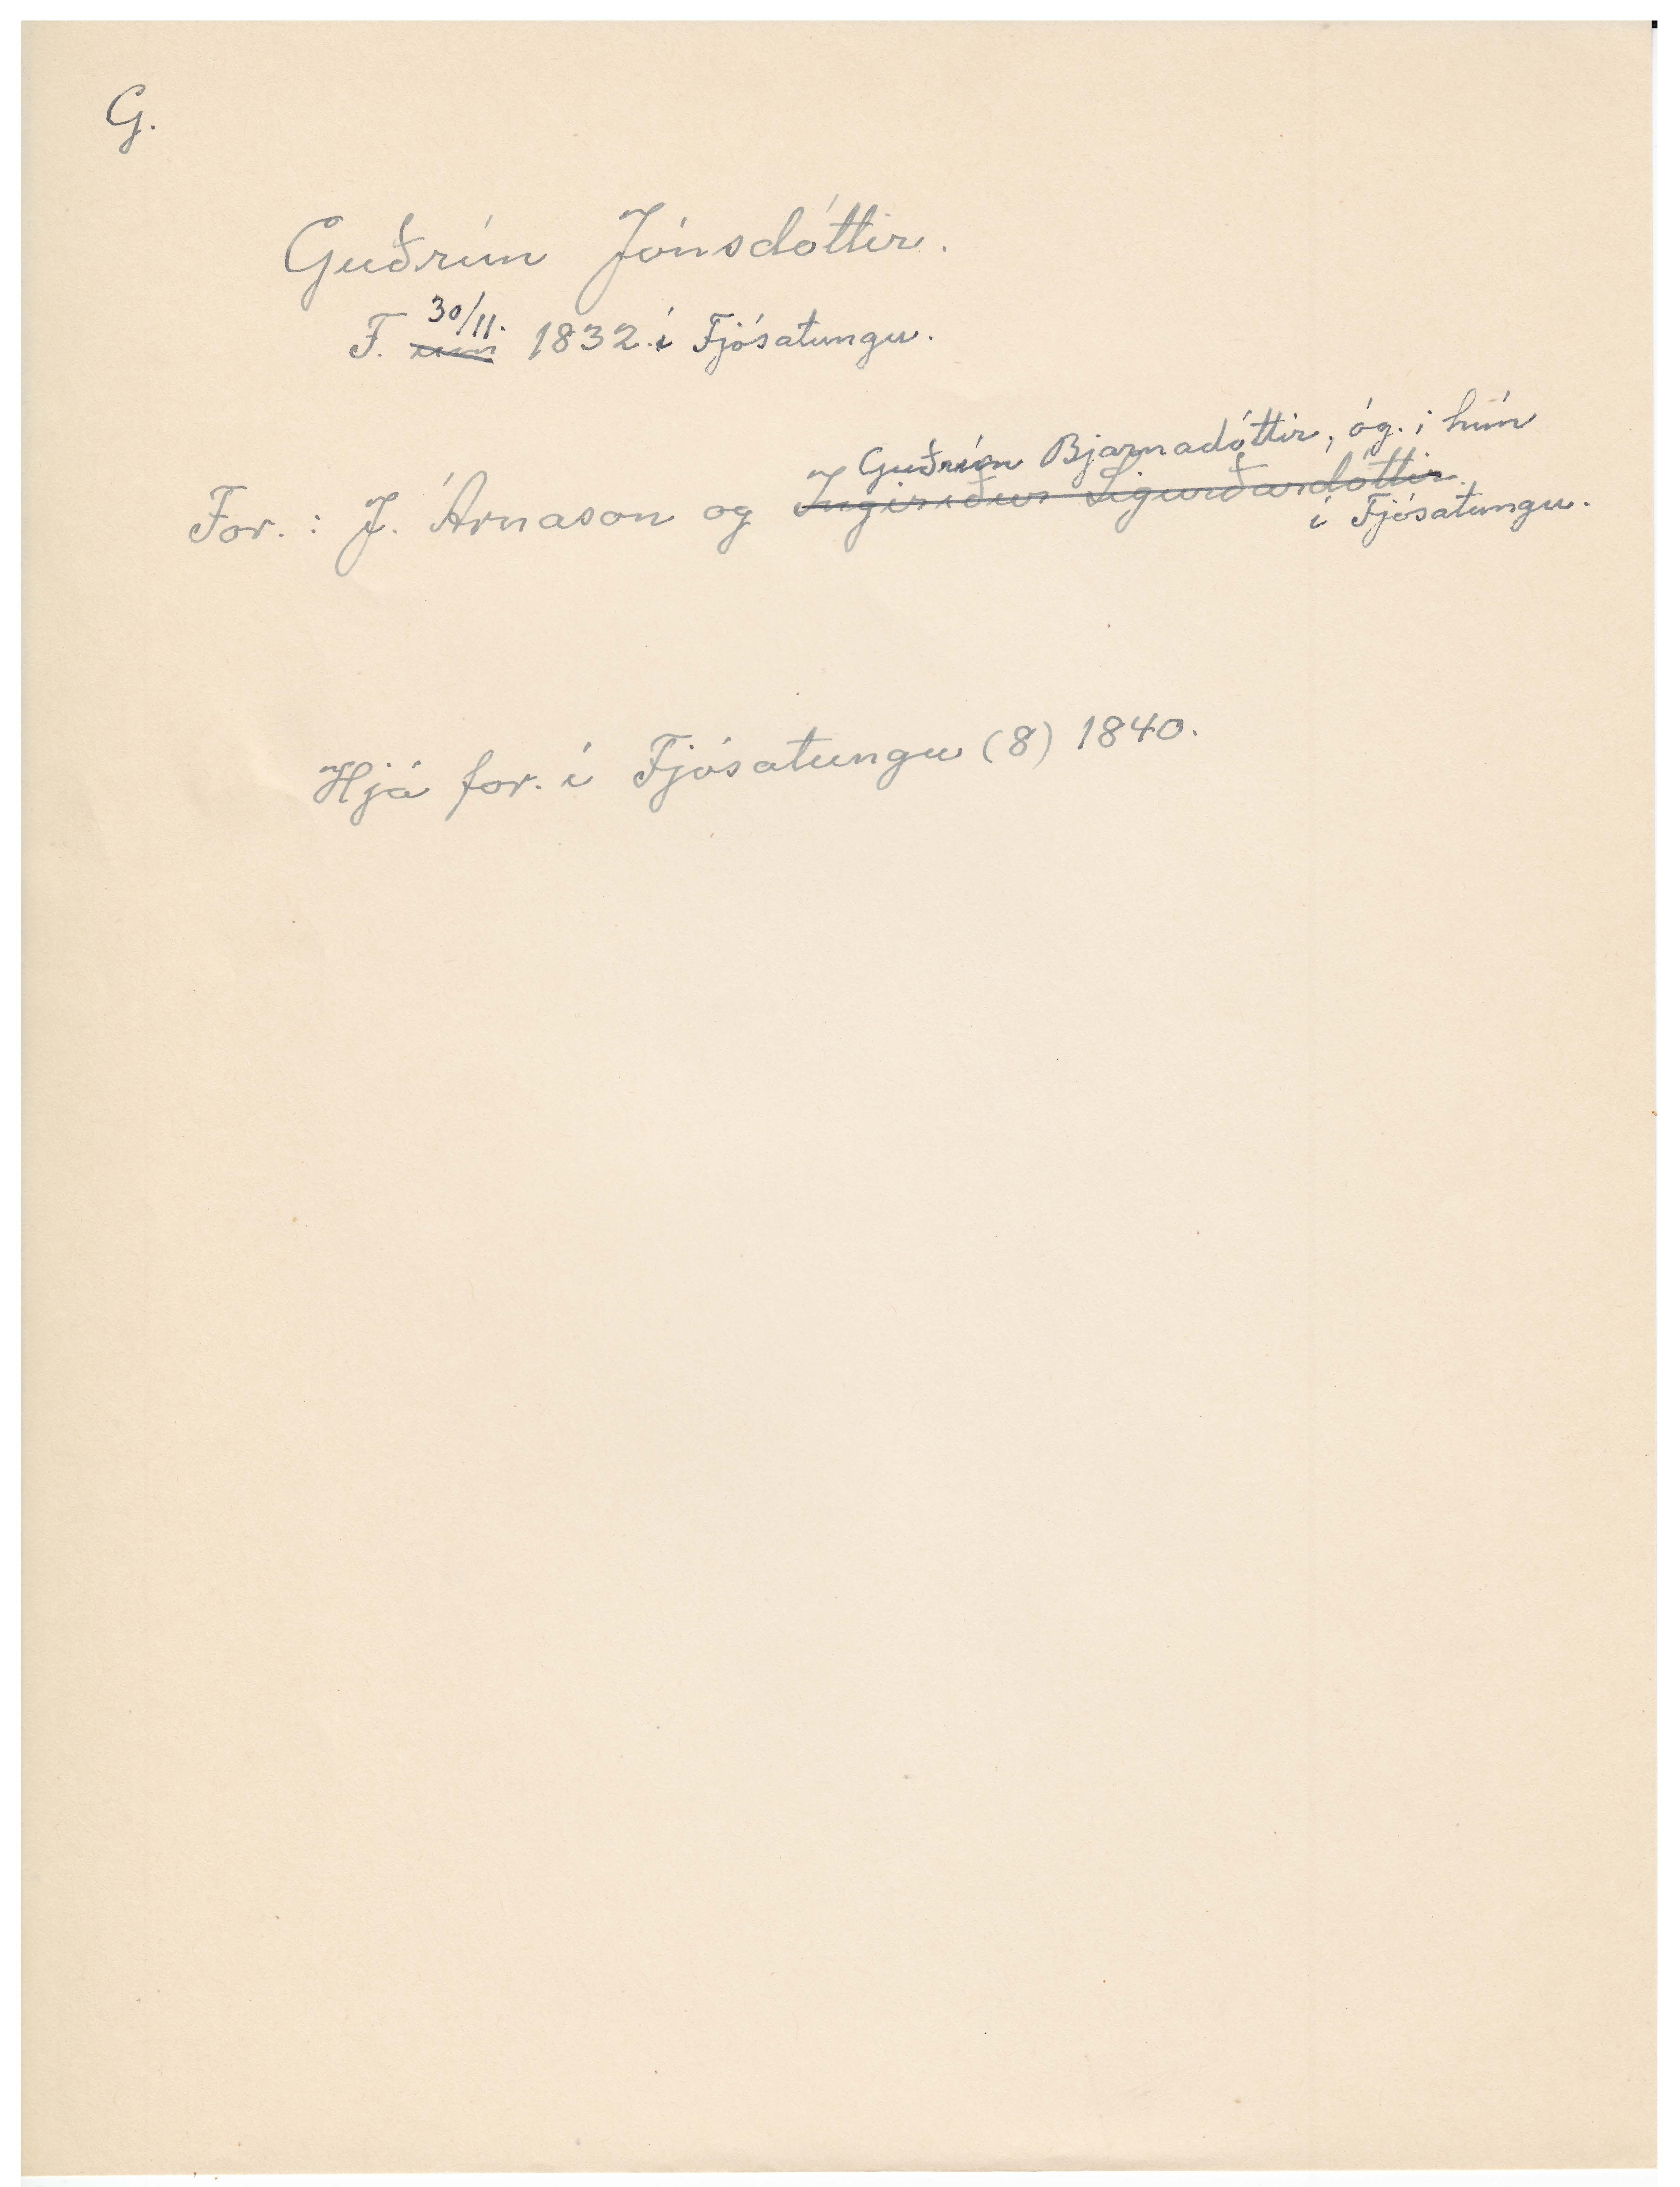 G.
Guðrún Jónsdóttir.
F. um 30/11. 1832 í Fjósatungu.
Guðrún Bjarnadóttir, óg.; hún
For.: J. Árnason og Ingiríður Sigurðardóttir.
í Fjósatungu.
Hjá for. í Fjósatungu (8) 1840.